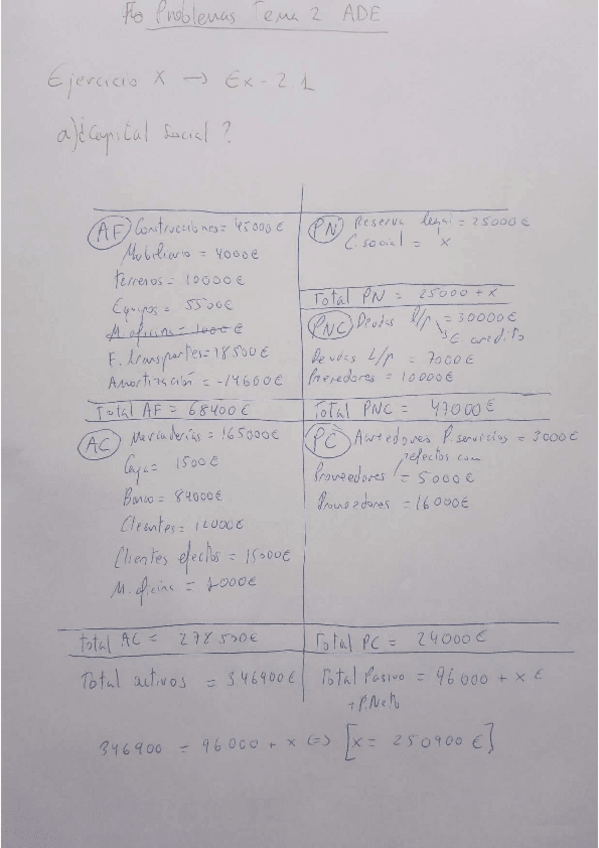 Problemas Tema 2 ADE
Ejercicio X → Ex-2.1
a) ¿Capital Social?
AF Construcciones = 45000€
Mobiliario = 4000€
Terrenos = 10000€
Equipos = 5500€
M. oficina = 1000€
F. transportes = 18500€
Amortización = -14600€
Total AF = 68400€
AC Mercaderías = 165000€
Caja = 1500€
Banco = 84000€
Clientes = 12000€
Clientes efectos = 15000€
M. oficina = 1000€
Total AC = 278500€
Total activos = 346900€
PN Reserva legal = 25000€
C. social = x
Total PN = 25000 + x
PNC Deudas l/p = 30000€
↳ E crédito
Deudas l/p = 7000€
Proveedores = 10000€
Total PNC = 47000€
PC Acreedores P. servicios = 3000€
efectos com
Proveedores = 5000€
Proveedores = 16000€
Total PC = 24000€
Total Pasivo = 96000 + x €
+ P. Neto
346900 = 96000 + x <=> [x = 250900€]